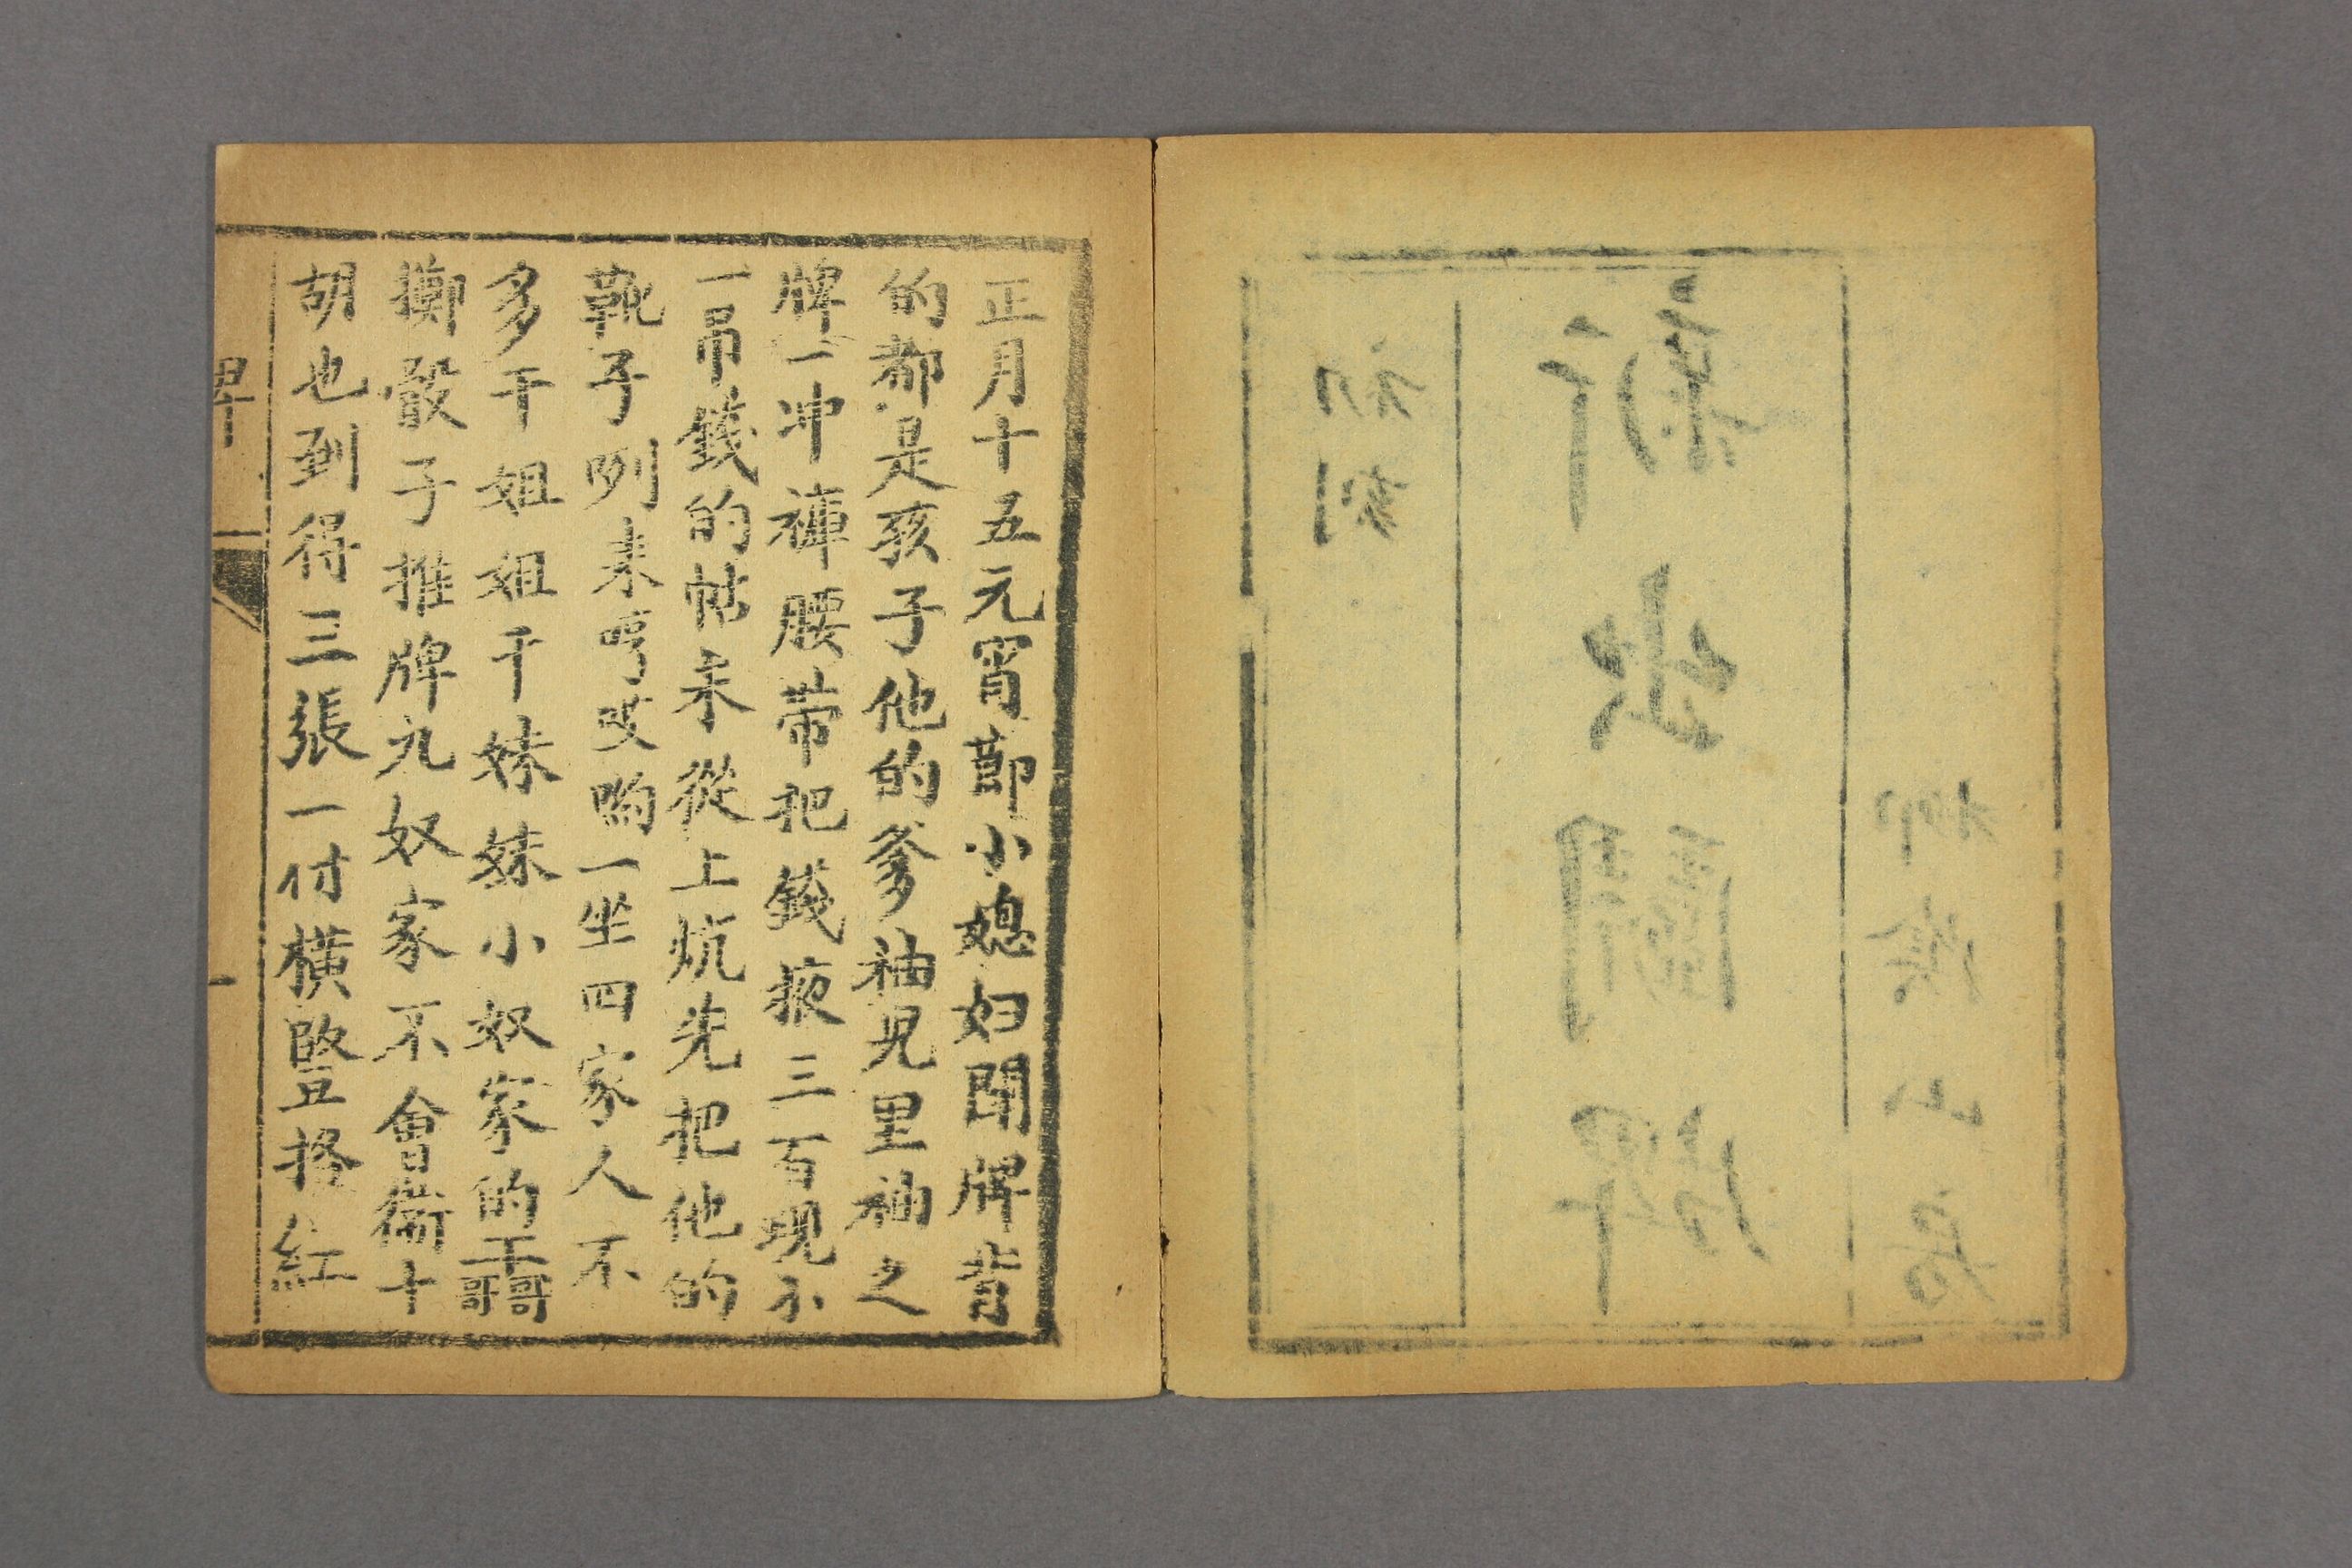 正月十五元宵節小媳妇鬪牌背
的都是孩子他的爹袖児里袖之
牌一冲褲腰带把錢掖三百現小
一吊錢的帖未從上炕先把他的
靴子咧来哼哎喲一坐四家人不
多干姐姐干妹妹小奴家的干哥哥
擲骰子推牌九奴家不會衚十
胡也到得三張一付橫竪捲紅
牌 一
初刻
新出鬪牌